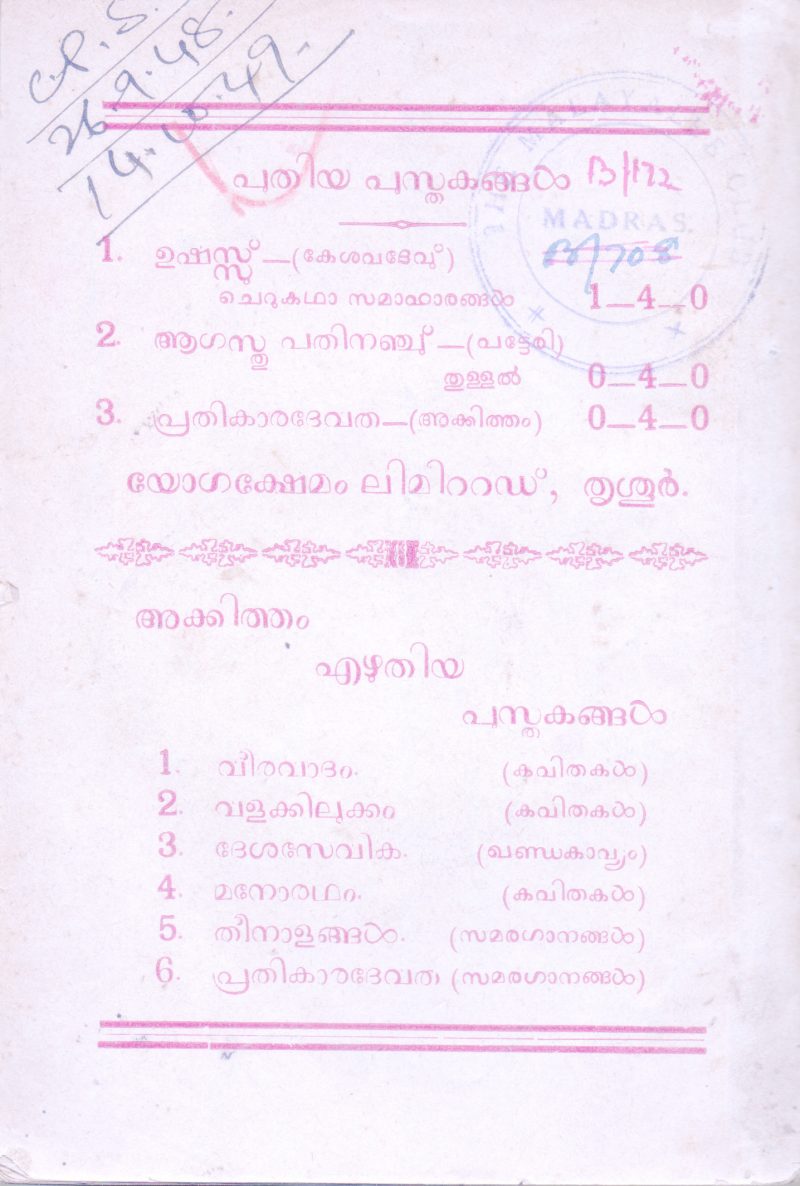 C.P.S.
26.9.48.
14.10.49.
THE MALAYALEE CLUB
MADRAS.
പുതിയ പുസ്തകങ്ങൾ B/172
B/708
1. ഉഷസ്സ് —(കേശവദേവ്)
ചെറുകഥാ സമാഹാരങ്ങൾ 1—4—0
2. ആഗസ്തു പതിനഞ്ച് —(പട്ടേരി)
തുള്ളൽ 0—4—0
3. പ്രതികാരദേവത—(അക്കിത്തം) 0—4—0
യോഗക്ഷേമം ലിമിററഡ്, തൃശൂർ.
അക്കിത്തം
എഴുതിയ
പുസ്തകങ്ങൾ
1. വീരവാദം. (കവിതകൾ)
2. വളക്കിലുക്കം (കവിതകൾ)
3. ദേശസേവിക. (ഖണ്ഡകാവ്യം)
4. മനോരഥം. (കവിതകൾ)
5. തീനാളങ്ങൾ. (സമരഗാനങ്ങൾ)
6. പ്രതികാരദേവത (സമരഗാനങ്ങൾ)